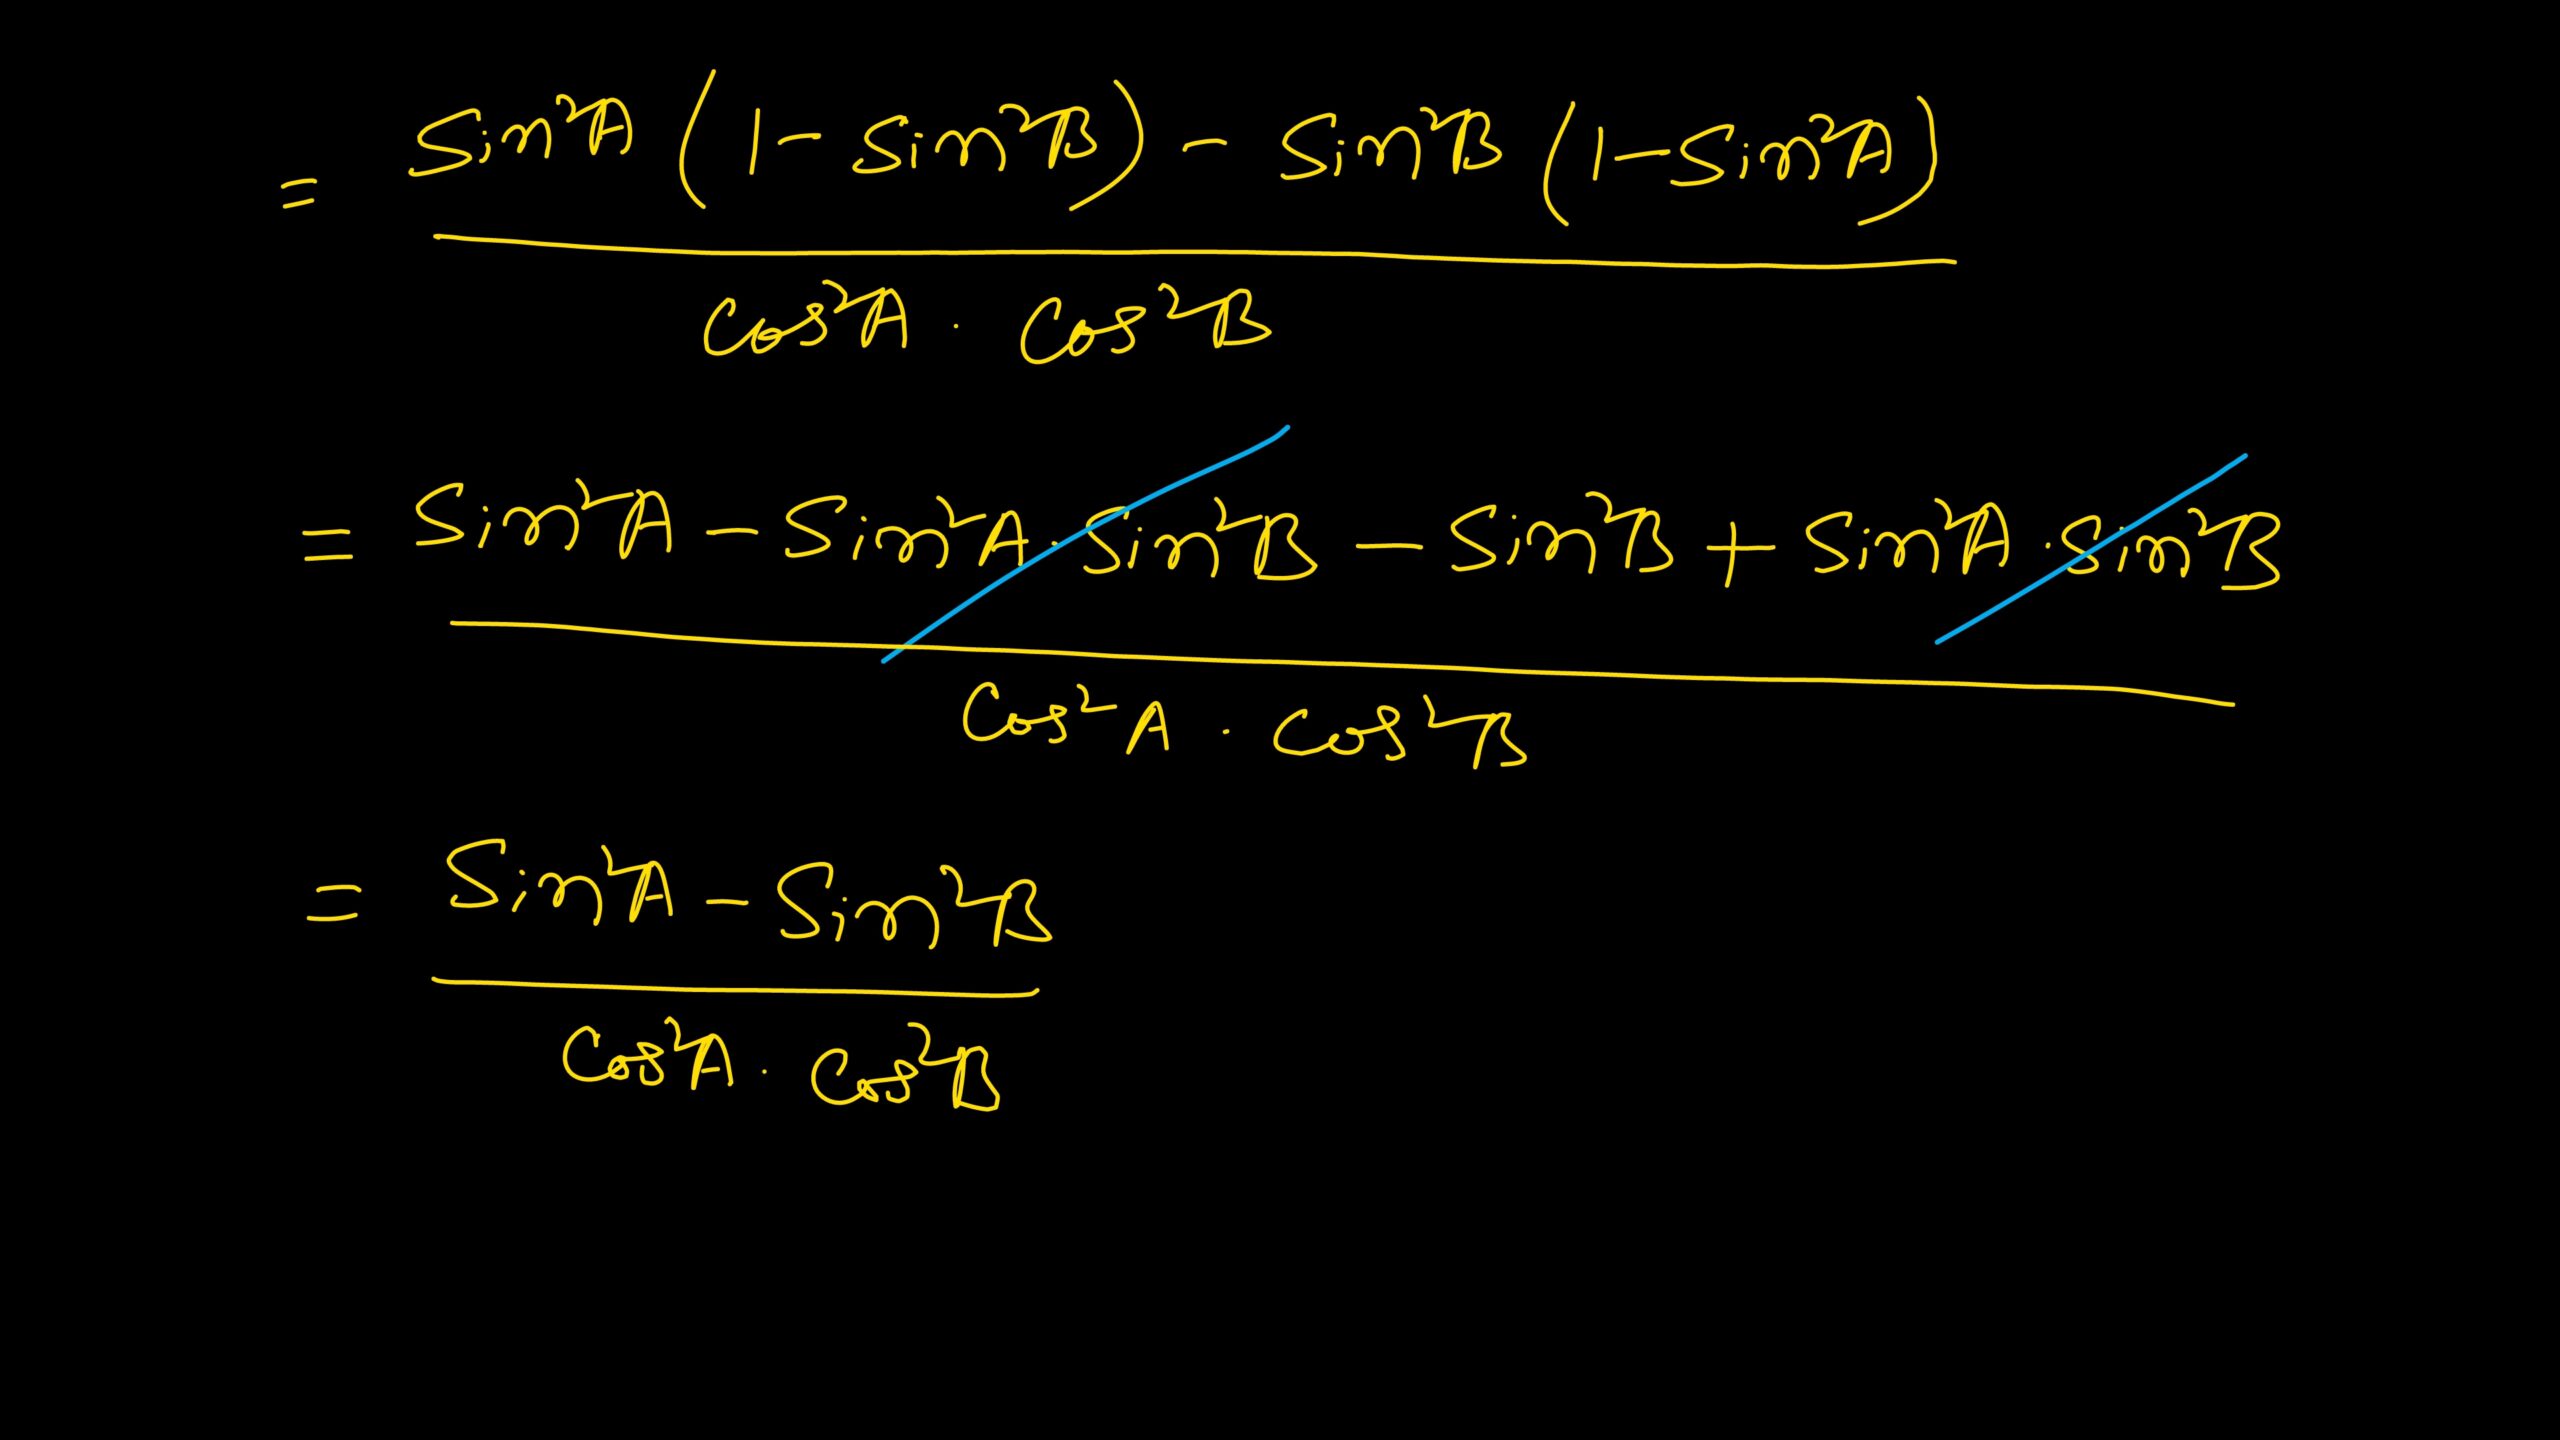 = Sin²A (1 - Sin²B) - Sin²B (1 - Sin²A)
Cos²A . Cos²B
= Sin²A - Sin²A . Sin²B - Sin²B + Sin²A . Sin²B
Cos²A . Cos²B
= Sin²A - Sin²B
Cos²A . Cos²B